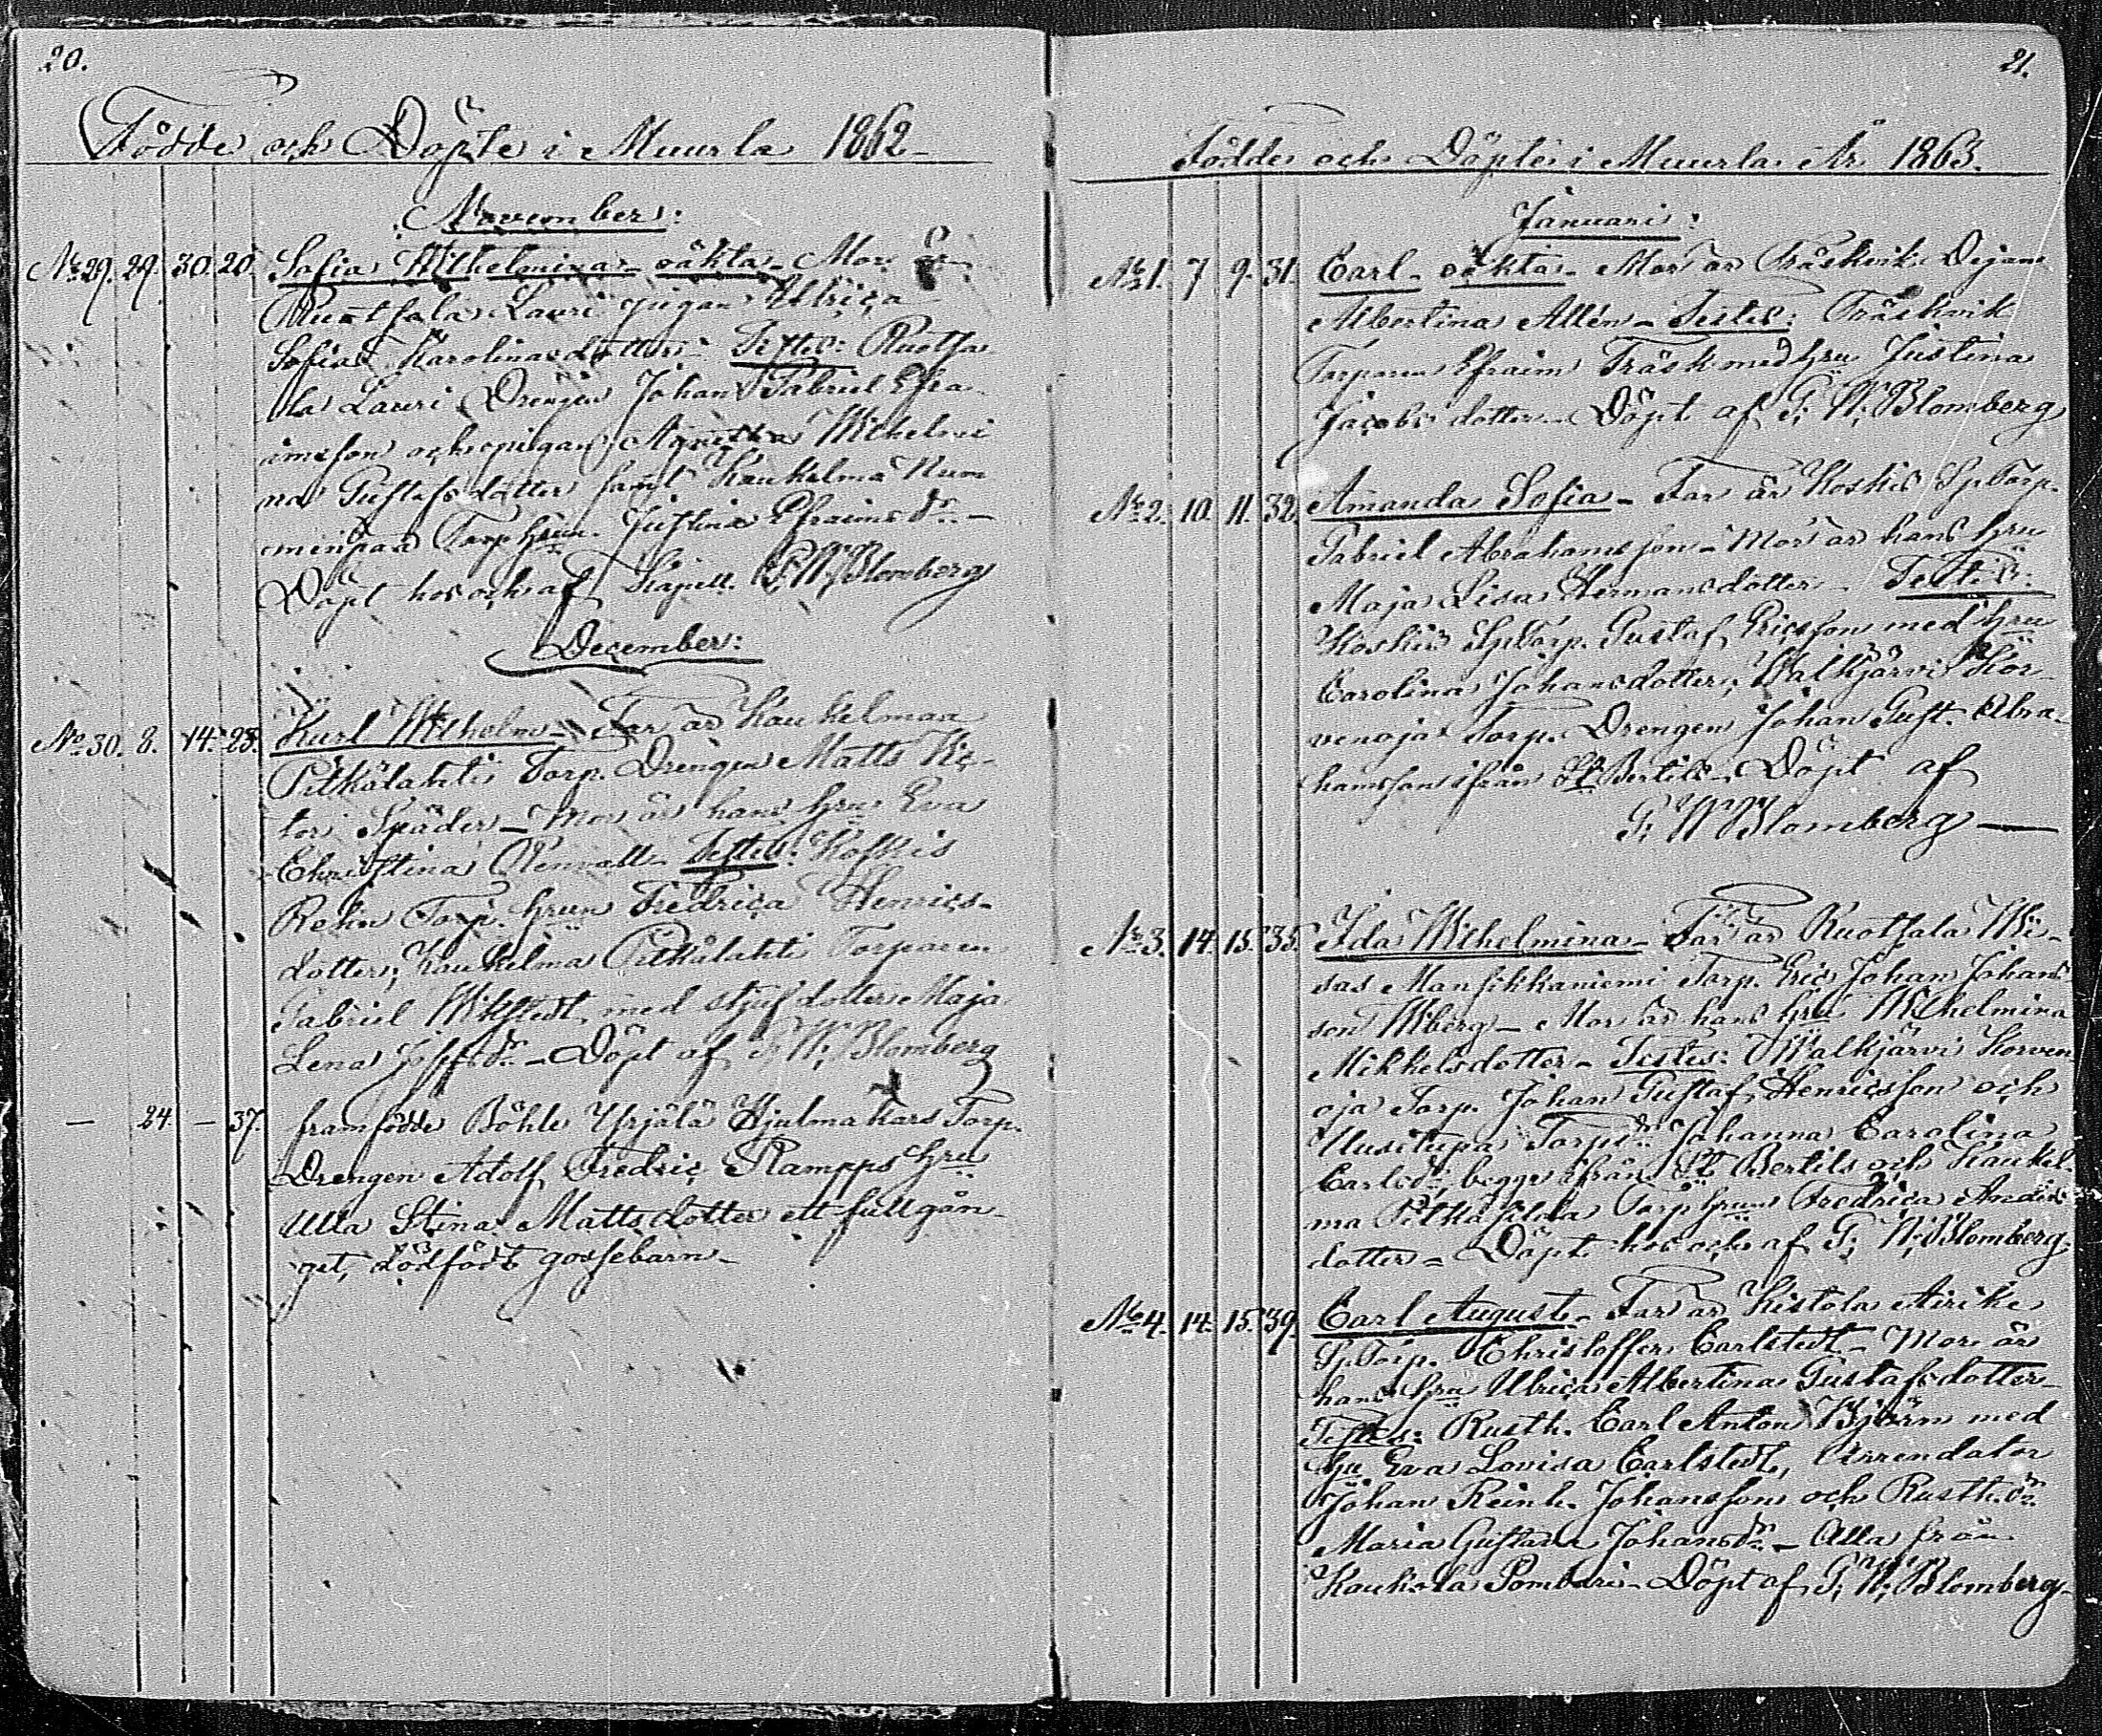 20.
Födde och Döpte i Muurla 1862
November:
No 29. 29. 30. 20. Sofia Wilhelmina oäkta - Mor är
Ruotsala Lauri pigan Ulrica
Sofia Karolinasdotter Testes: Ruotsa
la Lauri Drengen Johan Gabriel Efra
imsson och pigan Agneta Wilhelmi
na Gustafsdotter samt Kaukelma Num
minpää Torp hrun Justina Efraims dr -
Döpt hos och af Kapell. G. W. Blomberg
December:
No 30. 8. 14. 28. Karl Wilhelm - Far är Kaukelmaa
Pitkälahti Torp. Drengen Matts Vic-
tor Späder - Mor är hans hru Eva
Christina Renvall - Testes: Koskis
Rehn Torp. hrun Fredrica Henrics-
dotter, Kaukelma Pitkälahti Torparen
Gabriel Wikstedt med stjufdotter Maja
Lena Josefsdr - Döpt af G. W. Blomberg
- 24. - 37. framfödde Böhle Yrjälä Hjulmakars Torp.
Drengen Adolf Fredric Rampps hru
Ulla Stina Mattsdotter ett fullgån-
get, dödfödt gossebarn -
21.
Födde och Döpte i Muurla År 1863.
Januari:
No 1. 7 9. 31. Carl - oäkta - Mor är Träskvik Dejan
Albertina Allén - Testes: Träskvik
Torparen Efraim Träsk med hru Justina
Jacobsdotter - Döpt af G. W. Blomberg
No 2. 10. 11. 32. Amanda Sofia - Far är Koskis Sp. Torp.
Gabriel Abrahamsson - Mor är hans hru
Maja Lisa Hermansdotter - Testes:
Koskis Sp. Torp. Gustaf Ericsson med hru
Carolina Johansdotter, Walkjärvi Kor-
venoja Torp. Drengen Johan Gust. Abra-
hamsson ifrån St Bertils - Döpt af
G. W Blomberg
No 3. 14. 15. 35. Ida Wilhelmina - Far är Ruotsala Wi-
sas Mansikkaniemi Torp. Eric Johan Johans
son Wiberg - Mor är hans hru Wilhelmina
Mikkelsdotter - Testes: Walkjärvi Korven
oja Torp. Johan Gustaf Henricsson och
Uusitupa Torp dr Johanna Carolina
Carlsdr, begge ifrån St Bertils och Kaukel-
ma Torp hrun Fredrica Anders
dotter - Döpt hos och af G. W. Blomberg.
No 4. 14. 15. 39. Carl August - Far är Kistola Airike
Sp. Torp. Christoffer Carlstedt - Mor är
hans hru Ulrica Albertina Gustafsdotter -
Testes: Rusth. Carl Anton Björn med
hru Eva Lovisa Carlstedt, Arrendator
Johan Reinh. Johansson och Rusth. dr.
Maria Gustava Johansdr. - Alla från
Kaukola Pombari - Döpt af G. W. Blomberg -